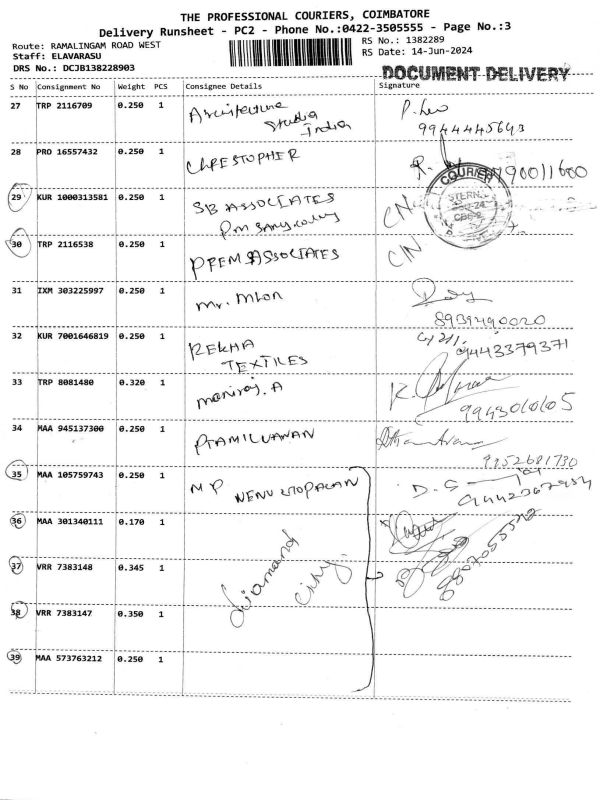 THE PROFESSIONAL COURIERS, COIMBATORE
Delivery Runsheet - PC2 - Phone No.:0422-3505555 - Page No.:3
Route: RAMALINGAM ROAD WEST
RS No.: 1382289
Staff: ELAVARASU
RS Date: 14-Jun-2024
DRS No.: DCJB138228903
DOCUMENT DELIVERY
S No Consignment No Weight PCS Consignee Details Signature
27 TRP 2116709 0.250 1 Architecture
Studio
India
9944445643
28 PRO 16557432 0.250 1 CHRESTOPHER
COURIER
29 KUR 1000313581 0.250 1 SB ASSOCIATES
CN
30 TRP 2116538 0.250 1 PREM ASSOCIATES
CN
31 IXM 303225997 0.250 1 Mr.
8939490020
32 KUR 7001646819 0.250 1 REKHA
TEXTILES
9443379371
33 TRP 8081480 0.320 1 Maniraj. A
34 MAA 945137300 0.250 1 PTAMILVANAN
9952681730
35 MAA 105759743 0.250 1 MP VENUGOPALAN
36 MAA 301340111 0.170 1
37 VRR 7383148 0.345 1 Diamond
City
38 VRR 7383147 0.350 1
39 MAA 573763212 0.250 1